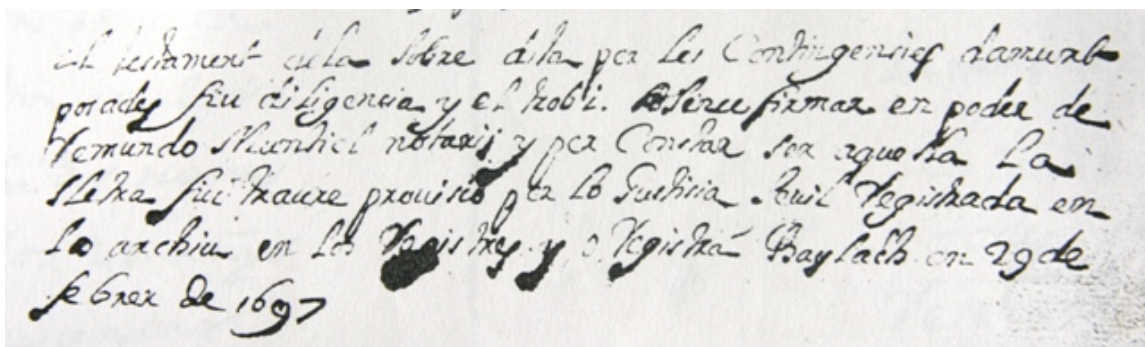 el testament dela sobre dita per les Contingencies damunt
posades fiu diligencia y el trobi. feu firmar en poder de
Vemundo notari y per Constar ser aquesta La
lletra fiu traure provisio per lo Justicia Sivil Registrada en
lo archiu en los Registres y o Registra Baylach en 29 de
febrer de 1697